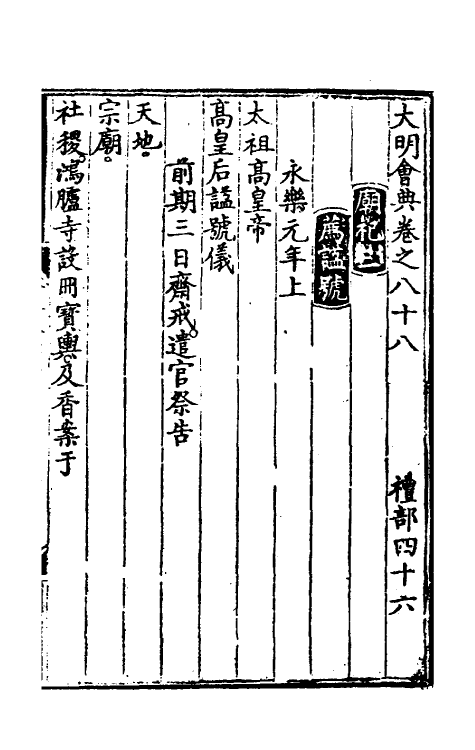 大明會典卷之八十八 禮部四十六
廟祀三
薦謚號
永樂元年上
太祖高皇帝
高皇后謚號儀
前期三日齋戒。遣官祭告
天地。
宗廟。
社稷。鴻臚寺設冊寶輿。及香案于